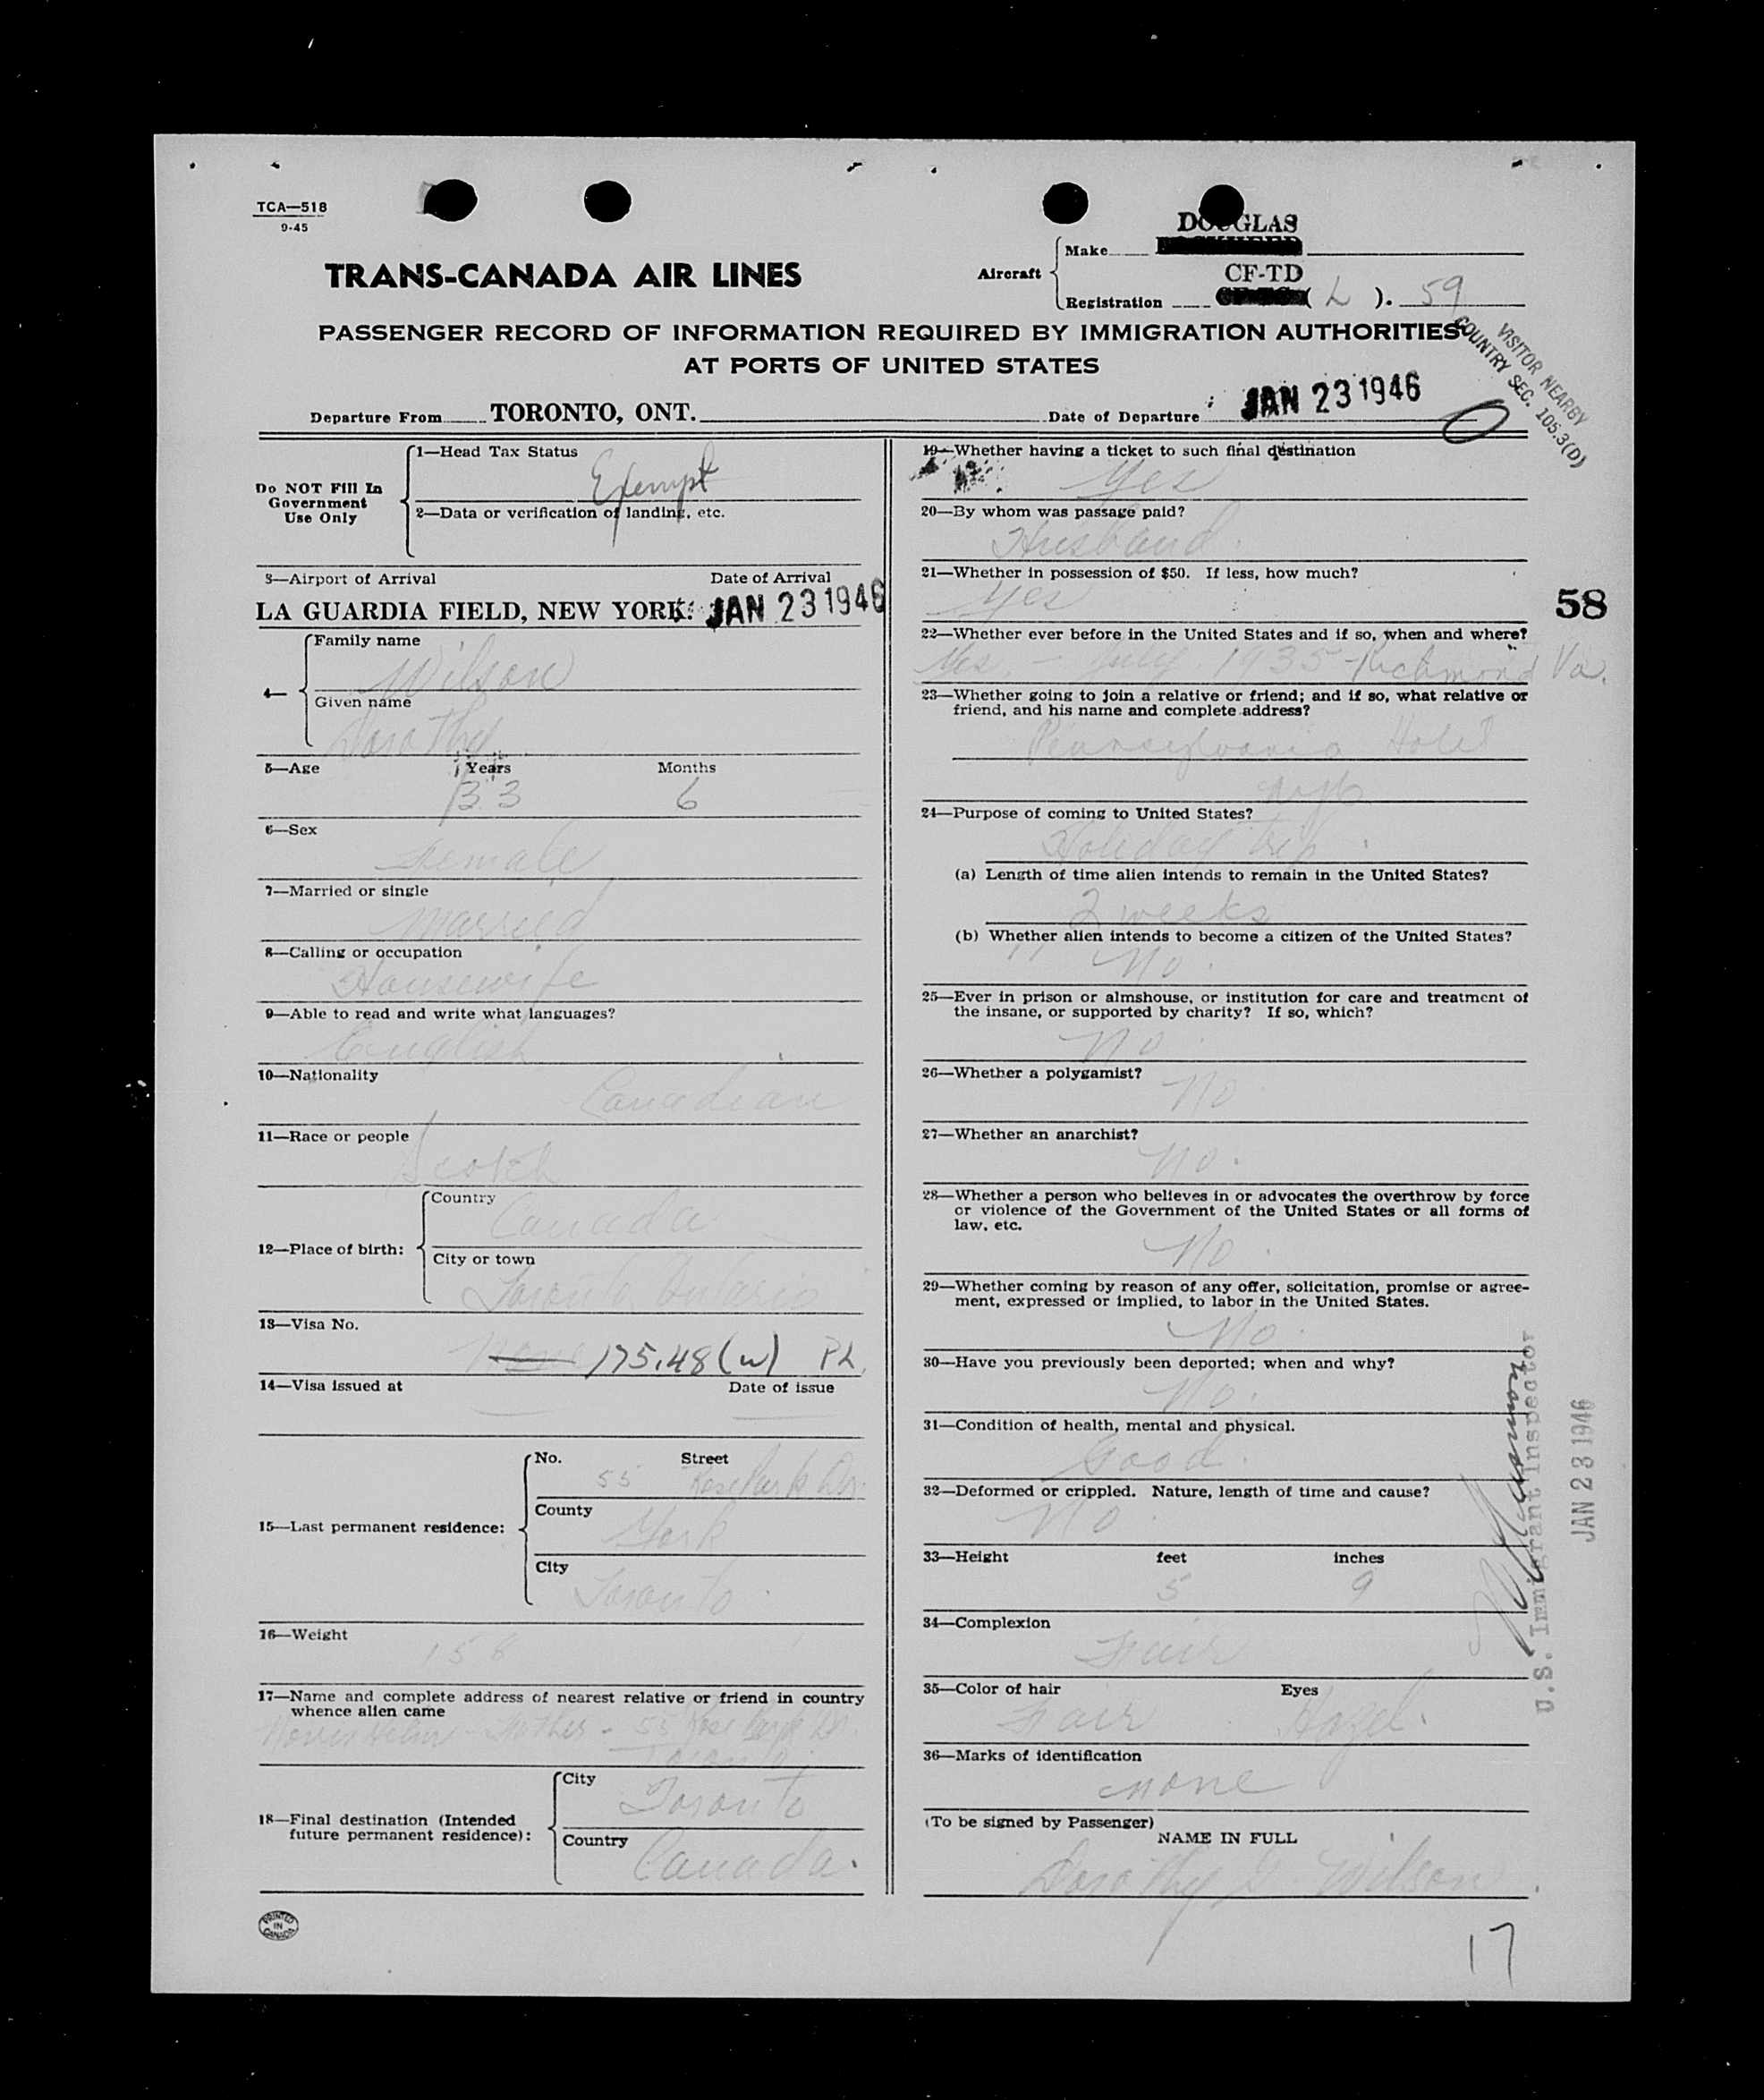 TCA—518
9-45
TRANS-CANADA AIR LINES
Aircraft
Make
DOUGLAS
Registration
CF-TD
( L ). 59
PASSENGER RECORD OF INFORMATION REQUIRED BY IMMIGRATION AUTHORITIES
AT PORTS OF UNITED STATES
VISITOR NEARBY
COUNTRY SEC. 105.3(D)
Departure From TORONTO, ONT.
Date of Departure JAN 23 1946
Do NOT Fill In
Government
Use Only
1—Head Tax Status
Exempt
2—Data or verification of landing, etc.
3—Airport of Arrival Date of Arrival
LA GUARDIA FIELD, NEW YORK. JAN 23 1946
4—
Family name
Wilson
Given name
Dorothy
5—Age Years Months
33 6
6—Sex
Female
7—Married or single
Married
8—Calling or occupation
Housewife
9—Able to read and write what languages?
English
10—Nationality
Canadian
11—Race or people
Scotch
12—Place of birth:
Country
Canada
City or town
Toronto Ontario
13—Visa No.
None 175.48 (w) PL
14—Visa issued at Date of issue
15—Last permanent residence:
No. Street
55 Rose Park Dr.
County
York
City
Toronto.
16—Weight
158
17—Name and complete address of nearest relative or friend in country
whence alien came
Mother - 55 Rose Park Dr.
Toronto.
18—Final destination (Intended
future permanent residence):
City
Toronto
Country
Canada.
PRINTED
IN
CANADA
19—Whether having a ticket to such final destination
Yes
20—By whom was passage paid?
Husband.
21—Whether in possession of $50. If less, how much?
Yes
58
22—Whether ever before in the United States and if so, when and where?
Yes - July 1935 - Richmond Va.
23—Whether going to join a relative or friend; and if so, what relative or
friend, and his name and complete address?
Pennsylvania Hotel
24—Purpose of coming to United States?
Holiday trip.
(a) Length of time alien intends to remain in the United States?
2 weeks
(b) Whether alien intends to become a citizen of the United States?
No.
25—Ever in prison or almshouse, or institution for care and treatment of
the insane, or supported by charity? If so, which?
No.
26—Whether a polygamist?
No.
27—Whether an anarchist?
No.
28—Whether a person who believes in or advocates the overthrow by force
or violence of the Government of the United States or all forms of
law, etc.
No.
29—Whether coming by reason of any offer, solicitation, promise or agree-
ment, expressed or implied, to labor in the United States.
No.
30—Have you previously been deported; when and why?
No.
31—Condition of health, mental and physical.
Good.
32—Deformed or crippled. Nature, length of time and cause?
No.
33—Height feet inches
5 9
34—Complexion
Fair
35—Color of hair Eyes
Fair Hazel.
36—Marks of identification
none
(To be signed by Passenger)
NAME IN FULL
Dorothy J. Wilson.
U.S. Immigrant Inspector
JAN 23 1946
17